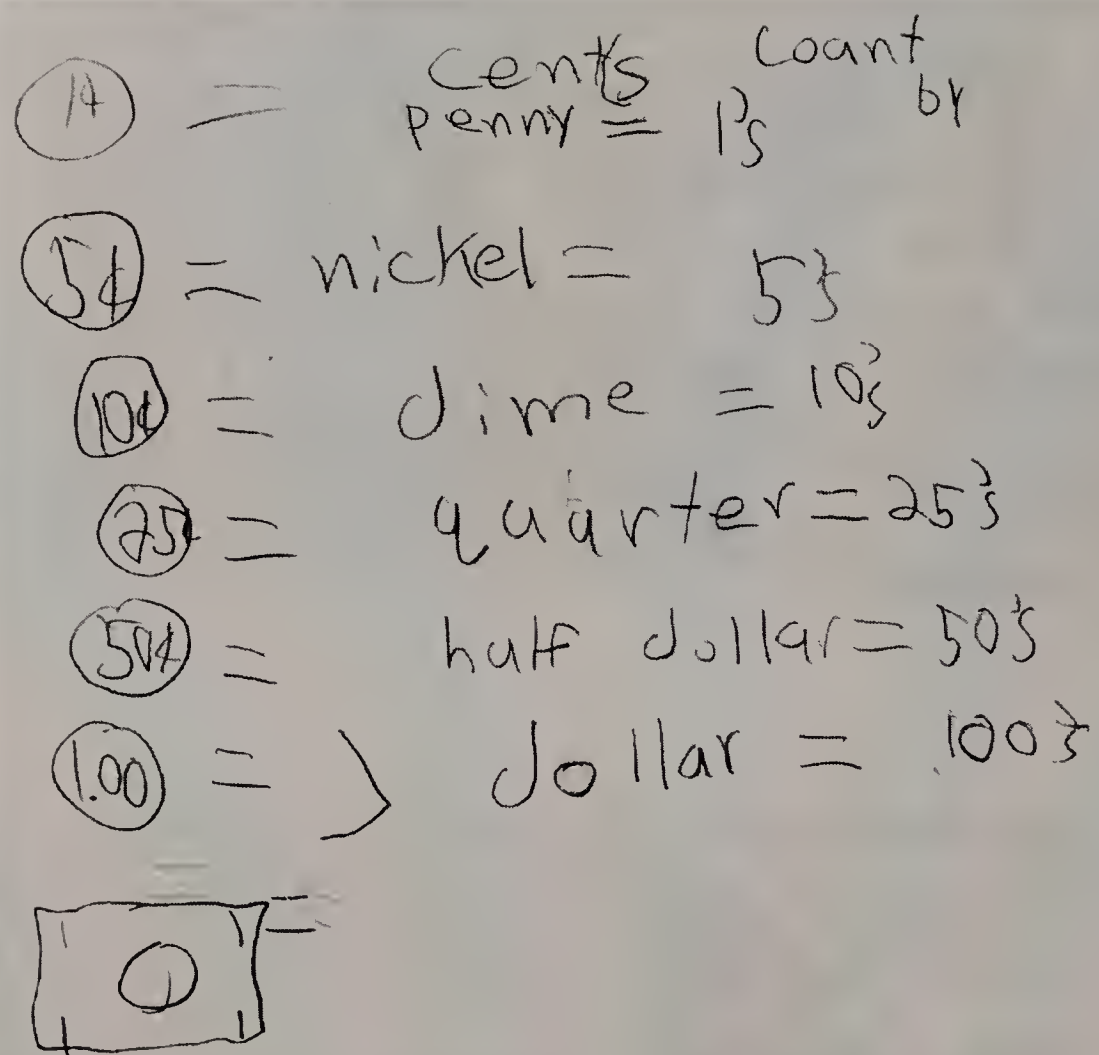 cents count
1¢ = penny = 1's by
5¢ = nickel = 5's
10¢ = dime = 10's
25¢ = quarter = 25's
50¢ = half dollar = 50's
1.00 = dollar = 100's
=
1 1
1
1 1